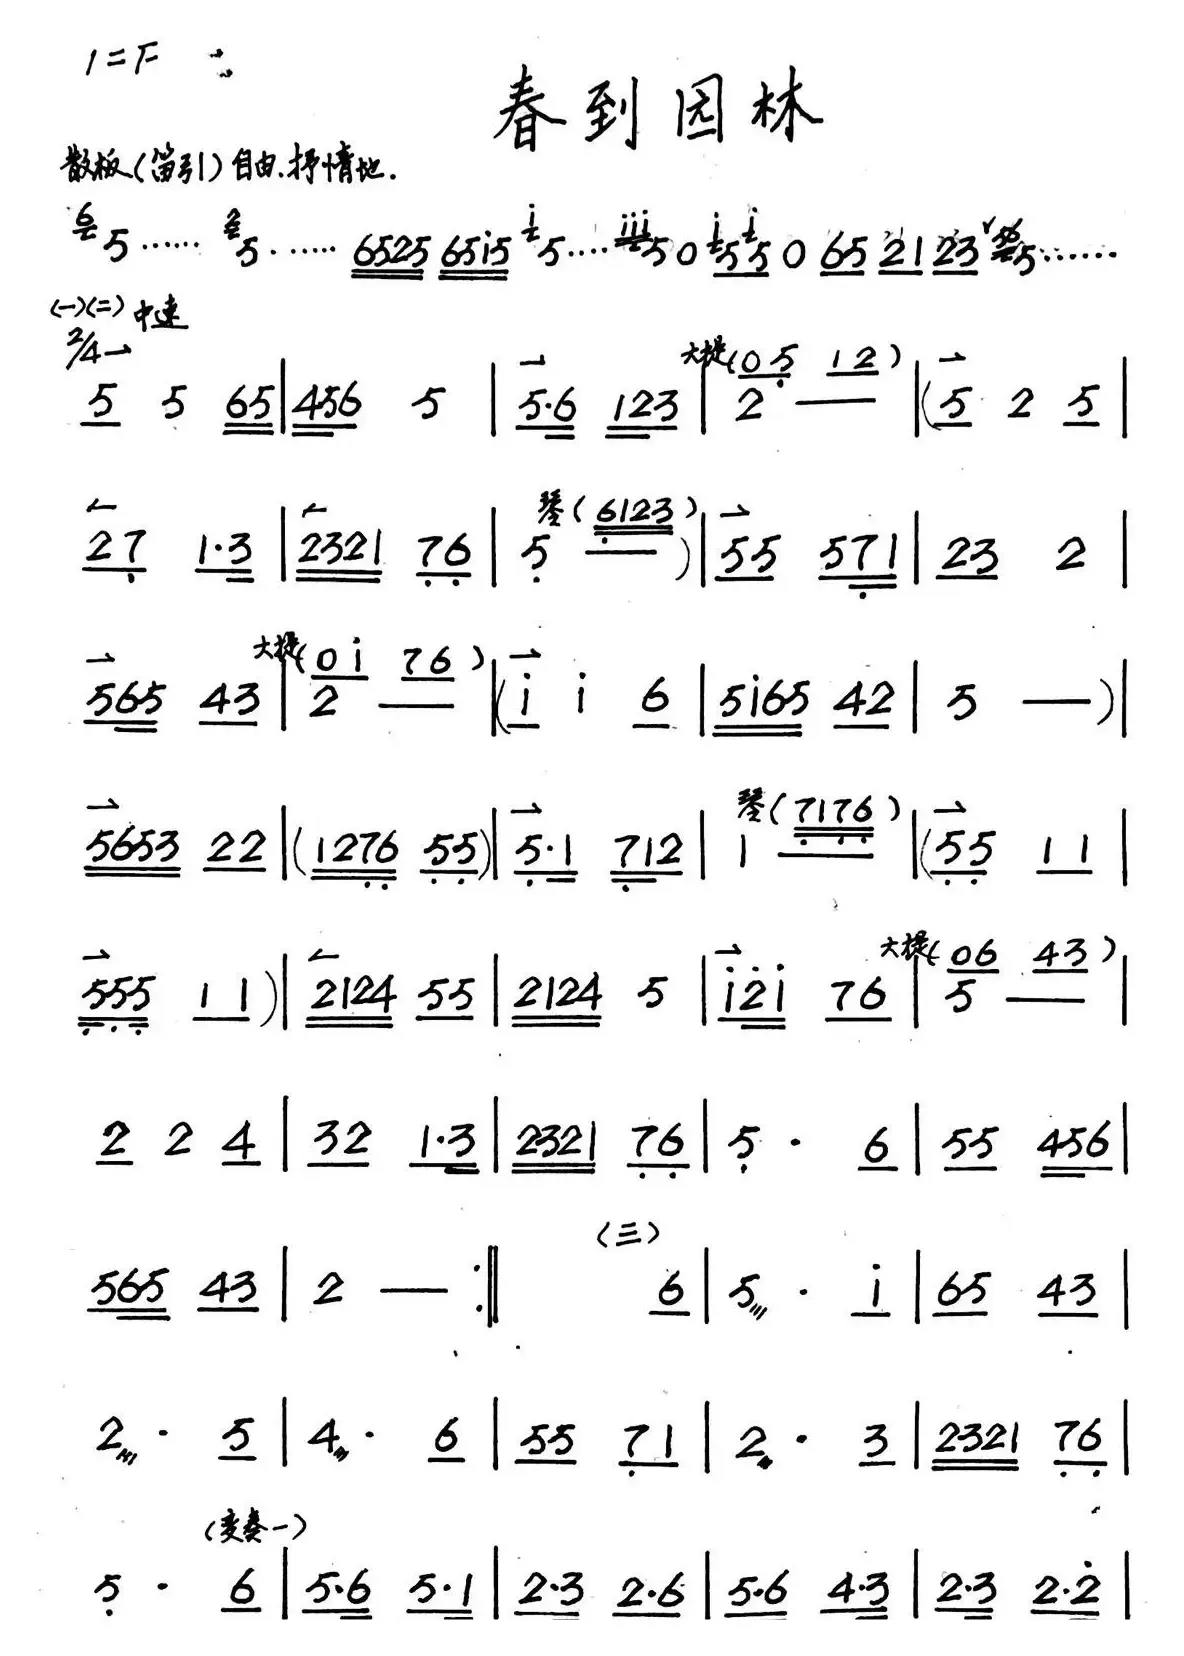 1=F
春到园林
散板(笛引)自由、抒情地.
6 5…… 2 5…… 6525 65i5 i 5…… iii 5 0 i 5 i 5 0 65 21 23 ∨ 56 5……
(一)(二) 中速
2/4
大提(05 12)
5 5 65 | 456 5 | 5·6 123 | 2 — | (5 2 5 |
琴(6123)
27 1·3 | 2321 76 | 5 — ) | 55 571 | 23 2 |
大提(0i 76)
565 43 | 2 — | (i i 6 | 5i65 42 | 5 — ) |
琴(7176)
5653 22 | (1276 55) | 5·1 712 | 1 — | (55 11 |
大提(06 43)
555 11) | 2124 55 | 2124 5 | i2̇i 76 | 5 — |
2 2 4 | 32 1·3 | 2321 76 | 5· 6 | 55 456 |
(三)
565 43 | 2 — :‖ 6 | 5· i | 65 43 |
2· 5 | 4· 6 | 55 71 | 2· 3 | 2321 76 |
(变奏一)
5· 6 | 5·6 5·1 | 2·3 2·6 | 5·6 4·3 | 2·3 2·2̇ |